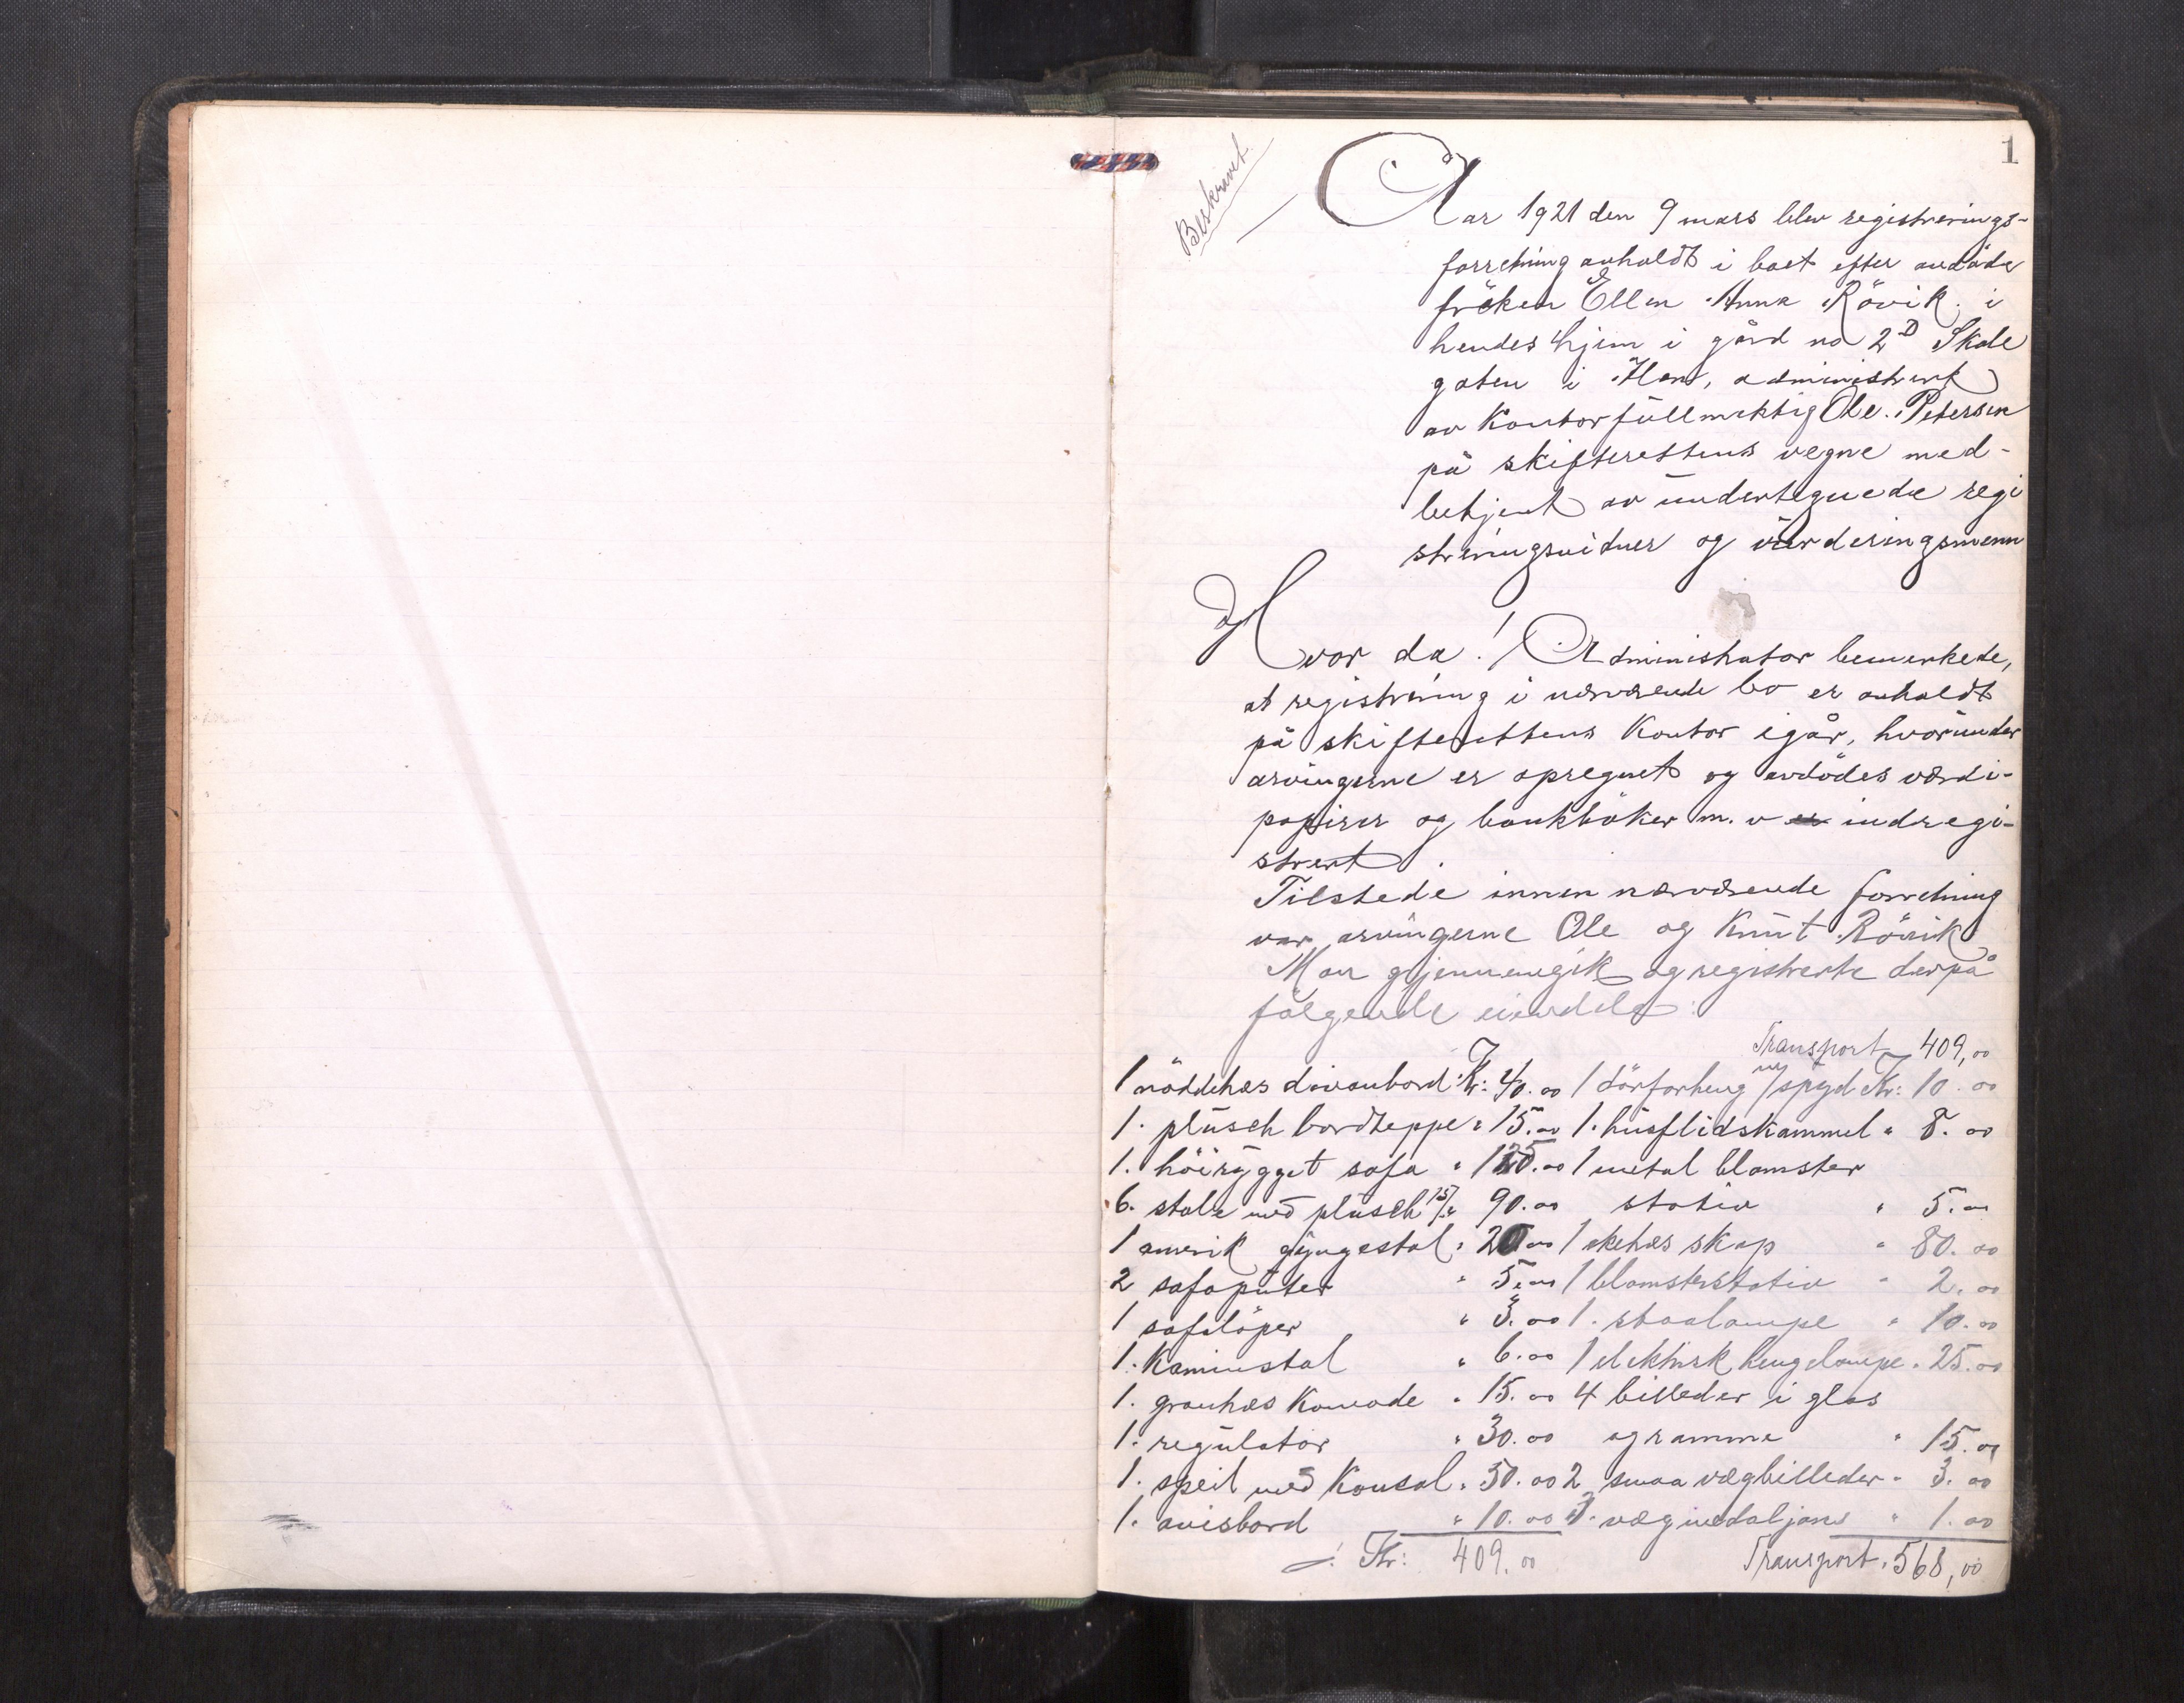 1
Beskrevet.
Aar 1921 den 9 mars blev registrerings-
forretning avholdt i boet efter avdöde
fröken Ellen Anna Rövik i
hendes hjem i gård no 2D Skole
gaten i , administrert
av Kontorfullmektig Ole Petersen
på skifterettens vegne med-
betjent av undertegnede regi
streringsvidner og værderingsmenn
Hvor da! Administrator bemerkede,
at registrering i nærværende bo er avholdt
på skifterettens Kontor igår, hvorunder
arvingerne er opregnet og avdödes værdi-
papirer og bankböker m. v er indregi-
strert.
Tilstede innen nærværende forretning
var arvingerne Ole og Knut Rövik
Man gjennemgik og registrerte derpå
følgende eiendele:
Transport 409,00
1 nöddetræs divanbord Kr: 40.00 1 dörforheng m/spyd Kr: 10.00
1. plusch bordteppe " 15.00 1. husflidskammel " 8.00
1. höirygget sofa " 125.00 1 metal blomster
6. stole med plusch 15/ " 90.00 stativ " 5.00
1 amerik gyngestol " 20.00 1 eketræs skap " 80.00
2 sofaputer " 5.00 1 blomsterstativ " 2.00
1 sofalöper " 3.00 1. staalampe " 10.00
1. Kaminstol " 6.00 1 elektrisk hengelampe " 25.00
1. grantræs Komode " 15.00 4 billeder i glas
1. regulator " 30.00 og ramme " 15.00
1. speil med Konsol " 50.00 2 smaa vægbilleder " 3.00
1. avisbord " 10.00 3. vægmedaljons " 1.00
Kr: 409.00 Transport 568,00